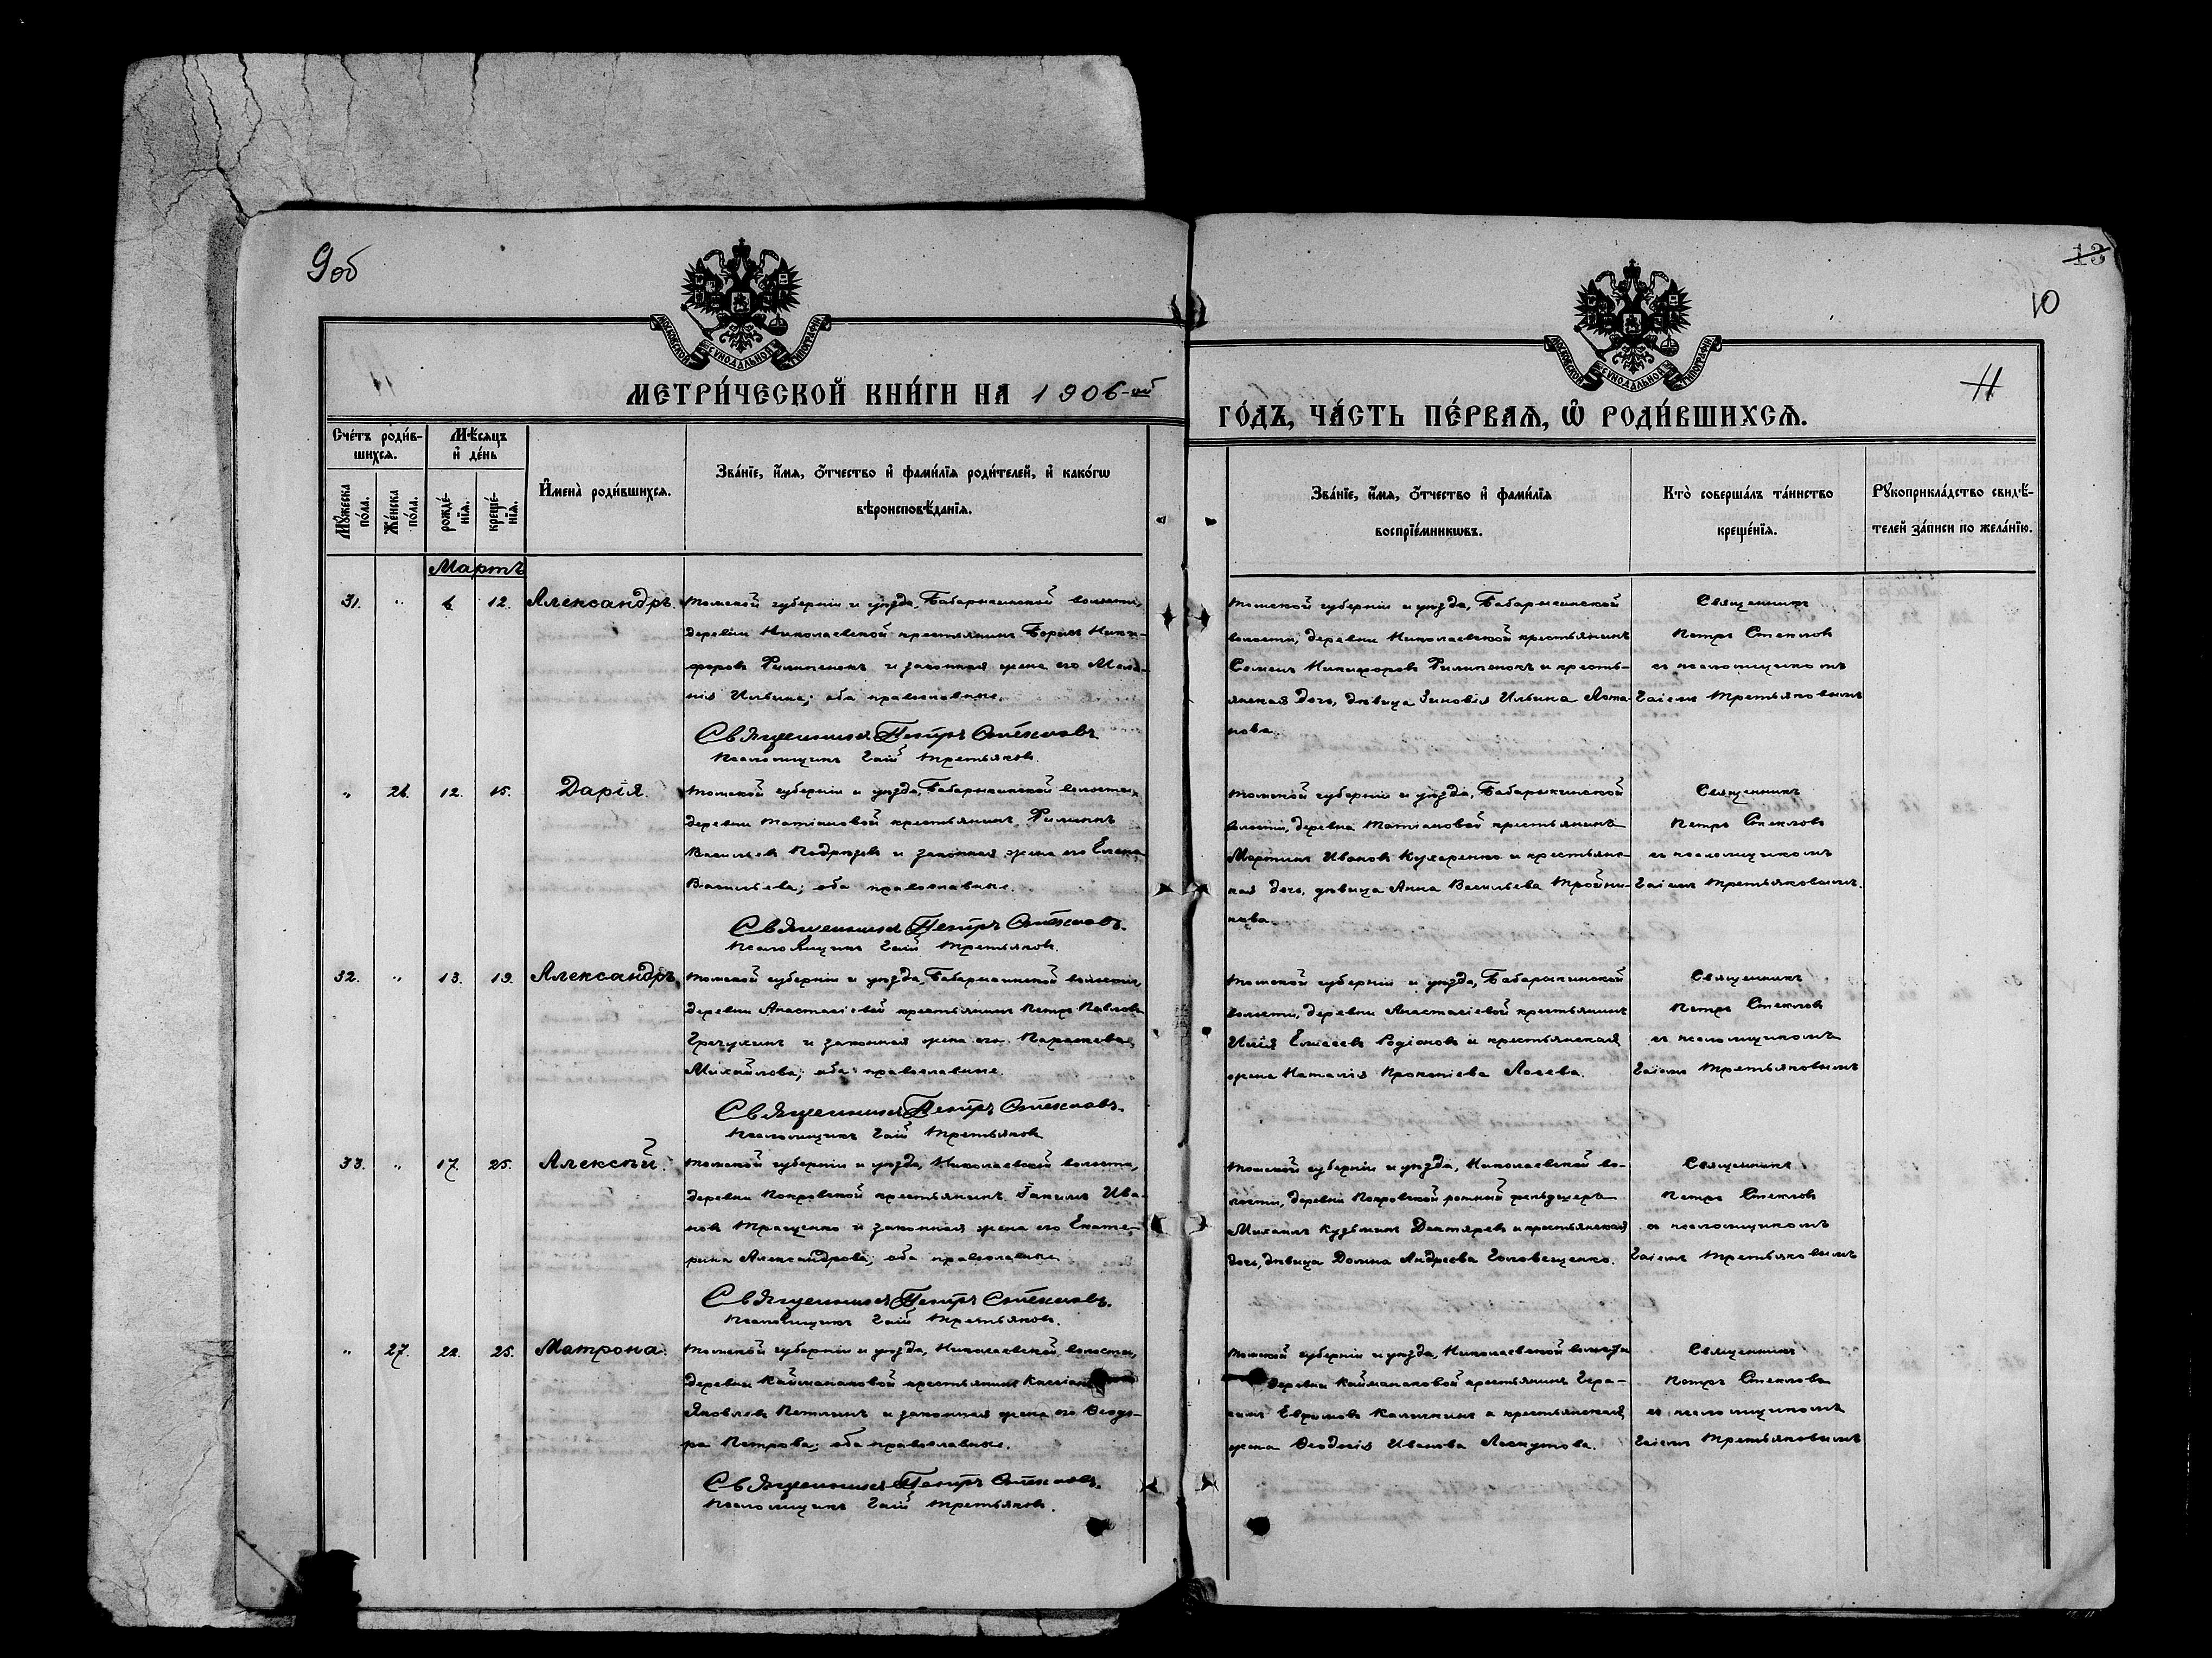 9об
13
10
11
МОСКОВСКОЙ СУНОДАЛЬНОЙ ТИПОГРАФІИ
МОСКОВСКОЙ СУНОДАЛЬНОЙ ТИПОГРАФІИ
МЕТРИ́ЧЕСКОЙ КНИ́ГИ НА 1906-ой
ГО́ДЪ, ЧА́СТЬ ПЕ́РВАѦ, Ѽ РОДИ́ВШИХСѦ.
Сче́тъ роди́в-
шихсѧ.
Мѣ́сѧцъ
и҆ де́нь
Мꙋ́жеска по́ла.
Же́нска по́ла.
рожде́-нїѧ.
креще́-нїѧ.
И҆мена̀ роди́вшихсѧ.
Зва́нїе, и҆́мѧ, ѻ҆́тчество и҆ фами́лїѧ роди́телей, и҆ како́гѡ
вѣроисповѣ́данїѧ.
Зва́нїе, и҆́мѧ, ѻ҆́тчество и҆ фами́лїѧ
воспрїе́мникѡвъ.
Кто̀ соверша́лъ та́инство
креще́нїѧ.
Рꙋкоприкла́дство свидѣ́-
телей за́писи по жела́нїю.
Мартъ
31. " 6 12. Александръ.
Томской губерніи и уѣзда, Бабарыкинской волости,
деревни Николаевской крестьянинъ Борисъ Ники-
форовъ Филипенокъ и законная жена его Мела-
нія Ильина; оба православные.
Священникъ Петръ Стекловъ
Псаломщикъ Гаій Третьяковъ.
Томской губерніи и уѣзда, Бабарыкинской
волости, деревни Николаевской крестьянинъ
Семенъ Никифоровъ Филипенокъ и кресть-
янская дочь, дѣвица Зиновія Ильина
нова.
Священникъ
Петръ Стекловъ
съ псаломщикомъ
Гаіемъ Третьяковымъ
" 26. 12. 15. Дарія.
Томской губерніи и уѣзда, Бабарыкинской волости,
деревни Татіановой крестьянинъ Филиппъ
Васильевъ и законная жена его Елена
Васильева; оба православные.
Священникъ Петръ Стекловъ.
Псаломщикъ Гаій Третьяковъ.
Томской губерніи и уѣзда, Бабарыкинской
волости, деревни Татіановой крестьянинъ
Мартинъ Ивановъ Кухаренко и крестьянс-
кая дочь, дѣвица Анна Васильева Тройни-
кова.
Священникъ
Петръ Стекловъ
съ псаломщикомъ
Гаіемъ Третьяковымъ.
32. " 13. 19. Александръ.
Томской губерніи и уѣзда, Бабарыкинской волости,
деревни Анастасіевой крестьянинъ Петръ Павловъ
и законная жена его Параскева
Михайлова; оба православные.
Священникъ Петръ Стекловъ.
Псаломщикъ Гаій Третьяковъ
Томской губерніи и уѣзда, Бабарыкинской
волости, деревни Анастасіевой крестьянинъ
Илія Елисеевъ Родіоновъ и крестьянская
жена Наталія Прокопіева Лосева.
Священникъ
Петръ Стекловъ
съ псаломщикомъ
Гаіемъ Третьяковымъ
33. " 17. 25. Алексѣй.
Томской губерніи и уѣзда, Николаевской волости,
деревни Покровской крестьянинъ Іакимъ Ива-
новъ Тращенко и законная жена его Екате-
рина Александрова; оба православные
Священникъ Петръ Стекловъ.
Псаломщикъ Гаій Третьяковъ.
Томской губерніи и уѣзда, Николаевской во-
лости, деревни Покровской ротный фельдшеръ
Михаилъ Кузьминъ Дектяревъ и крестьянская
дочь, дѣвица Домна Андреева Головещенко.
Священникъ
Петръ Стекловъ
съ псаломщикомъ
Гаіемъ Третьяковымъ
" 27. 22. 25. Матрона.
Томской губерніи и уѣзда, Николаевской волости,
деревни Каймонаковой крестьянинъ Кассіанъ
Яковлевъ Петлинъ и законная жена его Ѳеодо-
ра Петрова; оба православные.
Священникъ Петръ Стекловъ.
Псаломщикъ Гаій Третьяковъ.
Томской губерніи и уѣзда, Николаевской волости
деревни Каймонаковой крестьянинъ Гера-
симъ Ефимовъ Калинкинъ и крестьянская
жена Ѳеодосія Иванова Лоскутова.
Священникъ
Петръ Стекловъ
съ псаломщикомъ
Гаіемъ Третьяковымъ